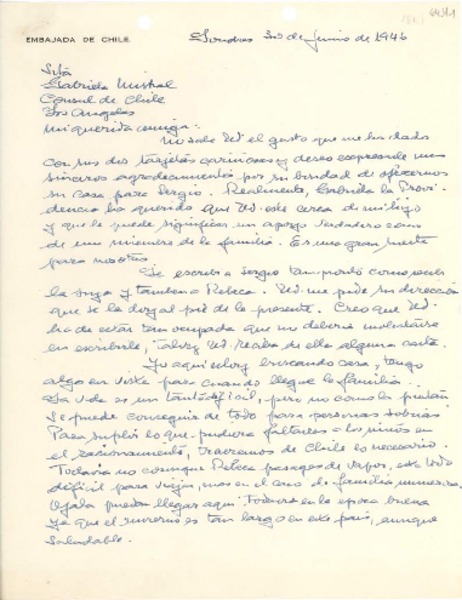 EMBAJADA DE CHILE
Londres 30 de junio de 1946
Srta
Gabriela Mistral
Consul de Chile
Los Angeles
Mi querida amiga:
No sabe Ud el gusto que me ha dado
con sus dos tarjetas cariñosas y deseo expresarle mis
sinceros agradecimientos por su bondad de ofrecernos
su casa para Sergio. Realmente, Gabriela la Provi
dencia ha querido que Ud. esté cerca de mi hijo
y que le puede significar un apoyo verdadero como
de un miembro de la familia. Es una gran suerte
para nosotros
Le escribí a Sergio tan pronto como recibí
la suya y tambien a Rebeca. Ud. me pide su dirección
que se la doy al pié de la presente. Creo que Ud.
ha de estar tan ocupada que no debería molestarse
en escribirle, talvez Ud. reciba de ella alguna carta.
Yo aquí estoy buscando casa, tengo
algo en vista para cuando llegue la familia.
La vida es un tanto difícil, pero no como la pintan
Se puede conseguir de todo para personas sobrias
Para suplir lo que pudiera faltarles a los niños en
el racionamiento, traeremos de Chile lo necesario.
Todavía no consigue Rebeca pasajes de vapor, está todo
difícil para viajar, mas en el caso de familia numerosa.
Ojalá puedan llegar aquí todavía en la época buena
ya que el invierno es tan largo en este país, aunque
saludable.